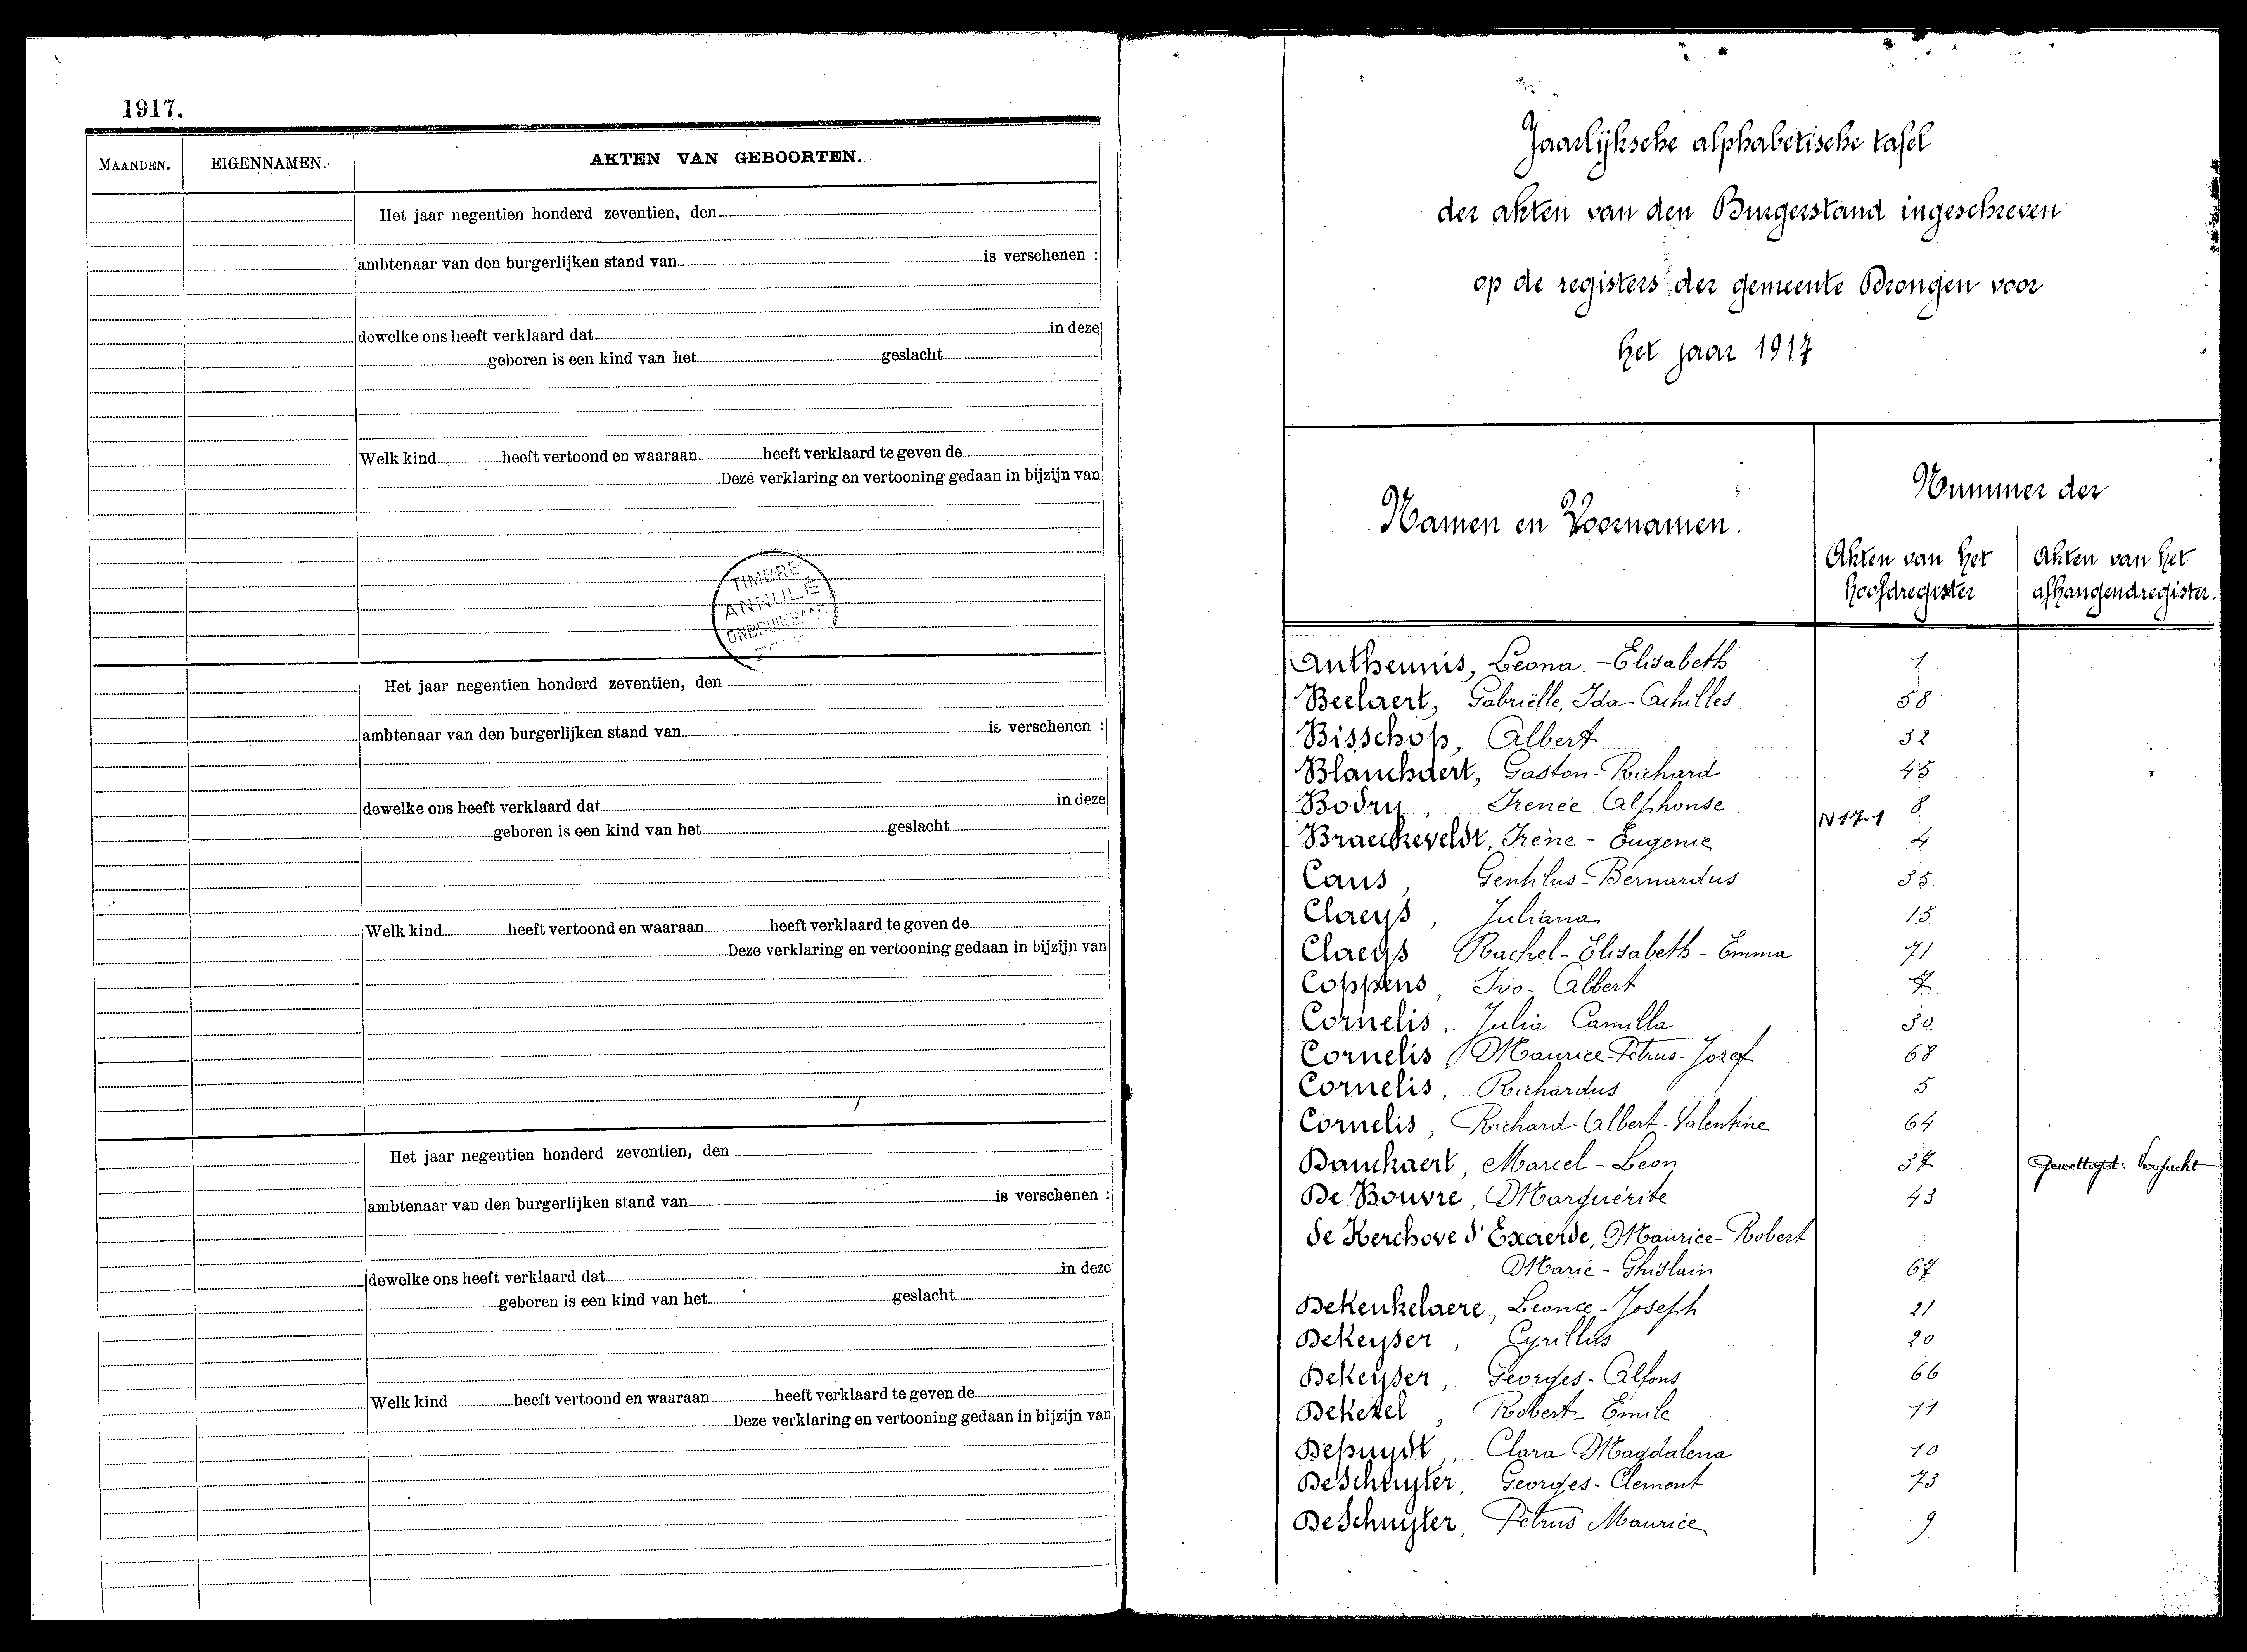 1917.
MAANDEN. EIGENNAMEN. AKTEN VAN GEBOORTEN.
Het jaar negentien honderd zeventien, den
ambtenaar van den burgerlijken stand van is verschenen :
dewelke ons heeft verklaard dat in deze
geboren is een kind van het geslacht
Welk kind heeft vertoond en waaraan heeft verklaard te geven de
Deze verklaring en vertooning gedaan in bijzijn van
TIMBRE
ANNULÉ
ONBRUIKBAAR
Het jaar negentien honderd zeventien, den
ambtenaar van den burgerlijken stand van is verschenen :
dewelke ons heeft verklaard dat in deze
geboren is een kind van het geslacht
Welk kind heeft vertoond en waaraan heeft verklaard te geven de
Deze verklaring en vertooning gedaan in bijzijn van
Het jaar negentien honderd zeventien, den
ambtenaar van den burgerlijken stand van is verschenen :
dewelke ons heeft verklaard dat in deze
geboren is een kind van het geslacht
Welk kind heeft vertoond en waaraan heeft verklaard te geven de
Deze verklaring en vertooning gedaan in bijzijn van
Jaarlijksche alphabetische tafel
der akten van den Burgerstand ingeschreven
op de registers der gemeente Drongen voor
het jaar 1917
Namen en Voornamen.
Nummer der
Akten van het hoofdregister
Akten van het afhangendregister.
Antheunis, Leona - Elisabeth 1
Beelaert, Gabriëlle, Ida - Achilles 58
Bisschop, Albert 32
Blanchaert, Gaston - Richard 45
Bodry, Irenée Alphonse 8
N 17-1
Braeckeveldt, Irène - Eugenie 4
Caus, Gentilus - Bernardus 35
Claeys, Juliana 15
Claeys Rachel - Elisabeth - Emma 71
Coppens, Ivo - Albert 7
Cornelis, Julia Camilla 30
Cornelis, Maurice - Petrus - Jozef 68
Cornelis, Richardus 5
Cornelis, Richard - Albert - Valentine 64
Danckaert, Marcel - Leon 37
De Bouvre, Marguérite 43
de Kerchove d'Exaerde, Maurice - Robert
Marie - Ghislain 67
Dekeukelaere, Leonce - Joseph 21
DeKeyser, Cyrillus 20
DeKeyser, Georges - Alfons 66
Deketel, Robert - Emile 11
Depuydt, Clara Magdalena 10
DeSchuyter, Georges - Clement 73
DeSchuyter, Petrus Maurice 9